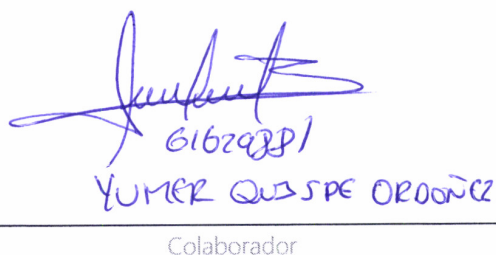 61629881
YUMER QUISPE ORDOÑEZ
Colaborador